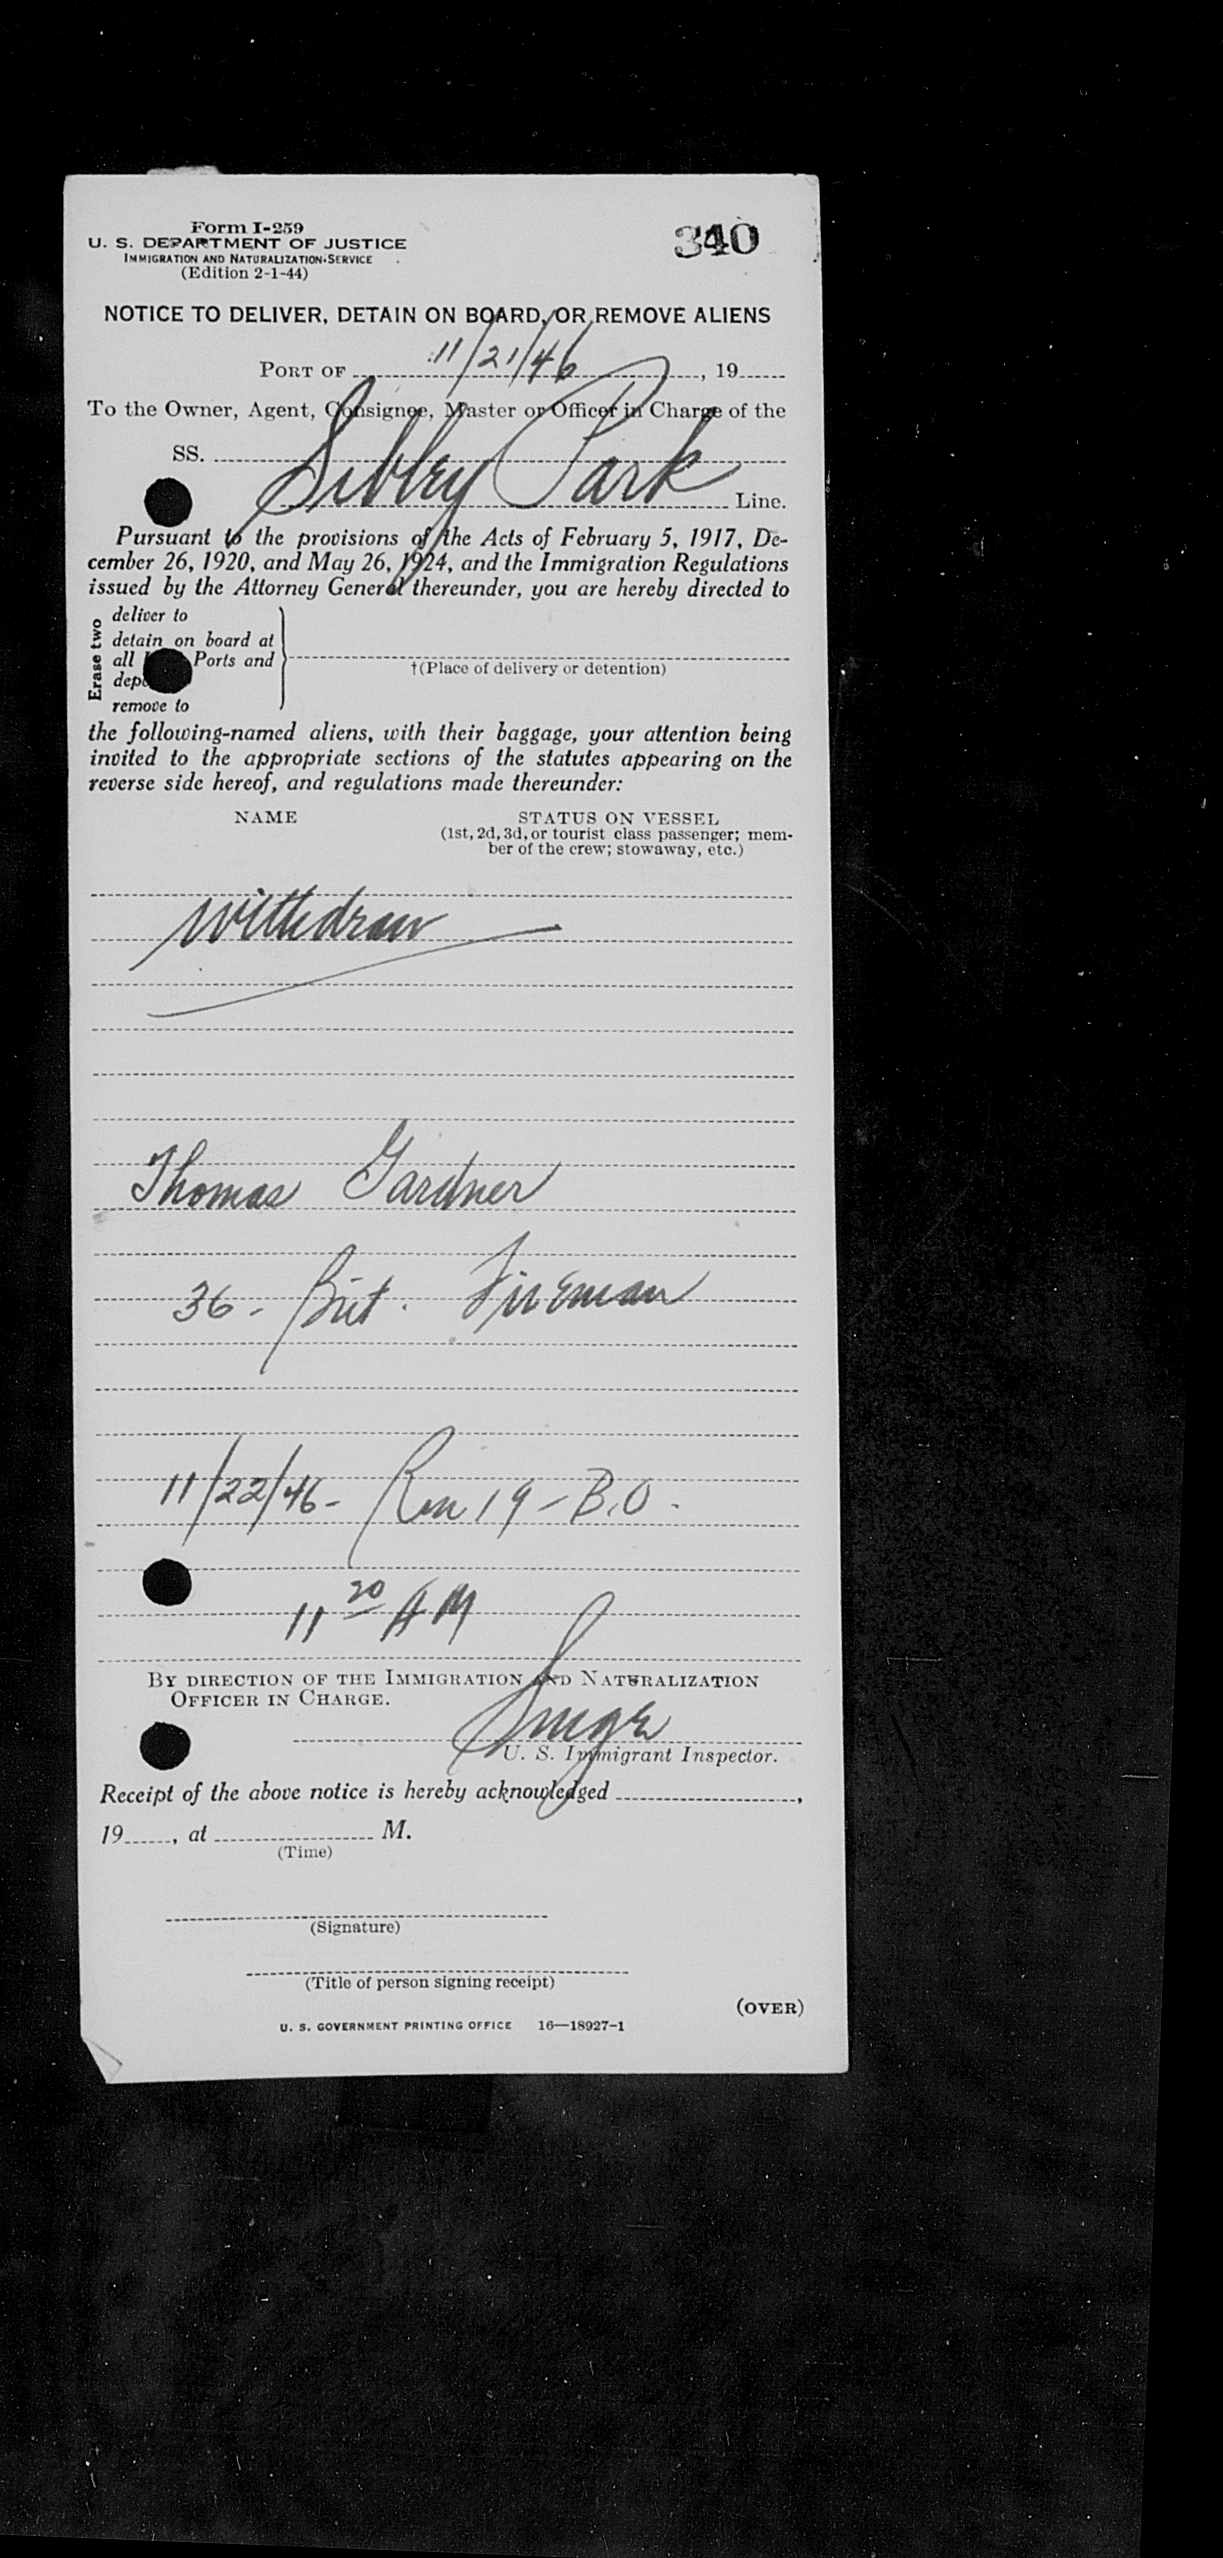 Form I-259
340
U. S. DEPARTMENT OF JUSTICE
IMMIGRATION AND NATURALIZATION SERVICE
(Edition 2-1-44)
NOTICE TO DELIVER, DETAIN ON BOARD, OR REMOVE ALIENS
PORT OF 11/21/46, 19
To the Owner, Agent, Consignee, Master or Officer in Charge of the
SS. Sibley Park
Line.
Pursuant to the provisions of the Acts of February 5, 1917, De-
cember 26, 1920, and May 26, 1924, and the Immigration Regulations
issued by the Attorney General thereunder, you are hereby directed to
Erase two
deliver to
detain on board at
all Ports and
remove to
†(Place of delivery or detention)
the following-named aliens, with their baggage, your attention being
invited to the appropriate sections of the statutes appearing on the
reverse side hereof, and regulations made thereunder:
NAME STATUS ON VESSEL
(1st, 2d, 3d, or tourist class passenger; mem-
ber of the crew; stowaway, etc.)
Withdraw
Thomas Gardner
36 - Brit. Fireman
11/22/46 - Rm 19 - B.O.
11 20 AM
BY DIRECTION OF THE IMMIGRATION AND NATURALIZATION
OFFICER IN CHARGE.
U. S. Immigrant Inspector.
Receipt of the above notice is hereby acknowledged ,
19 , at M.
(Time)
(Signature)
(Title of person signing receipt)
(OVER)
U. S. GOVERNMENT PRINTING OFFICE 16—18927-1